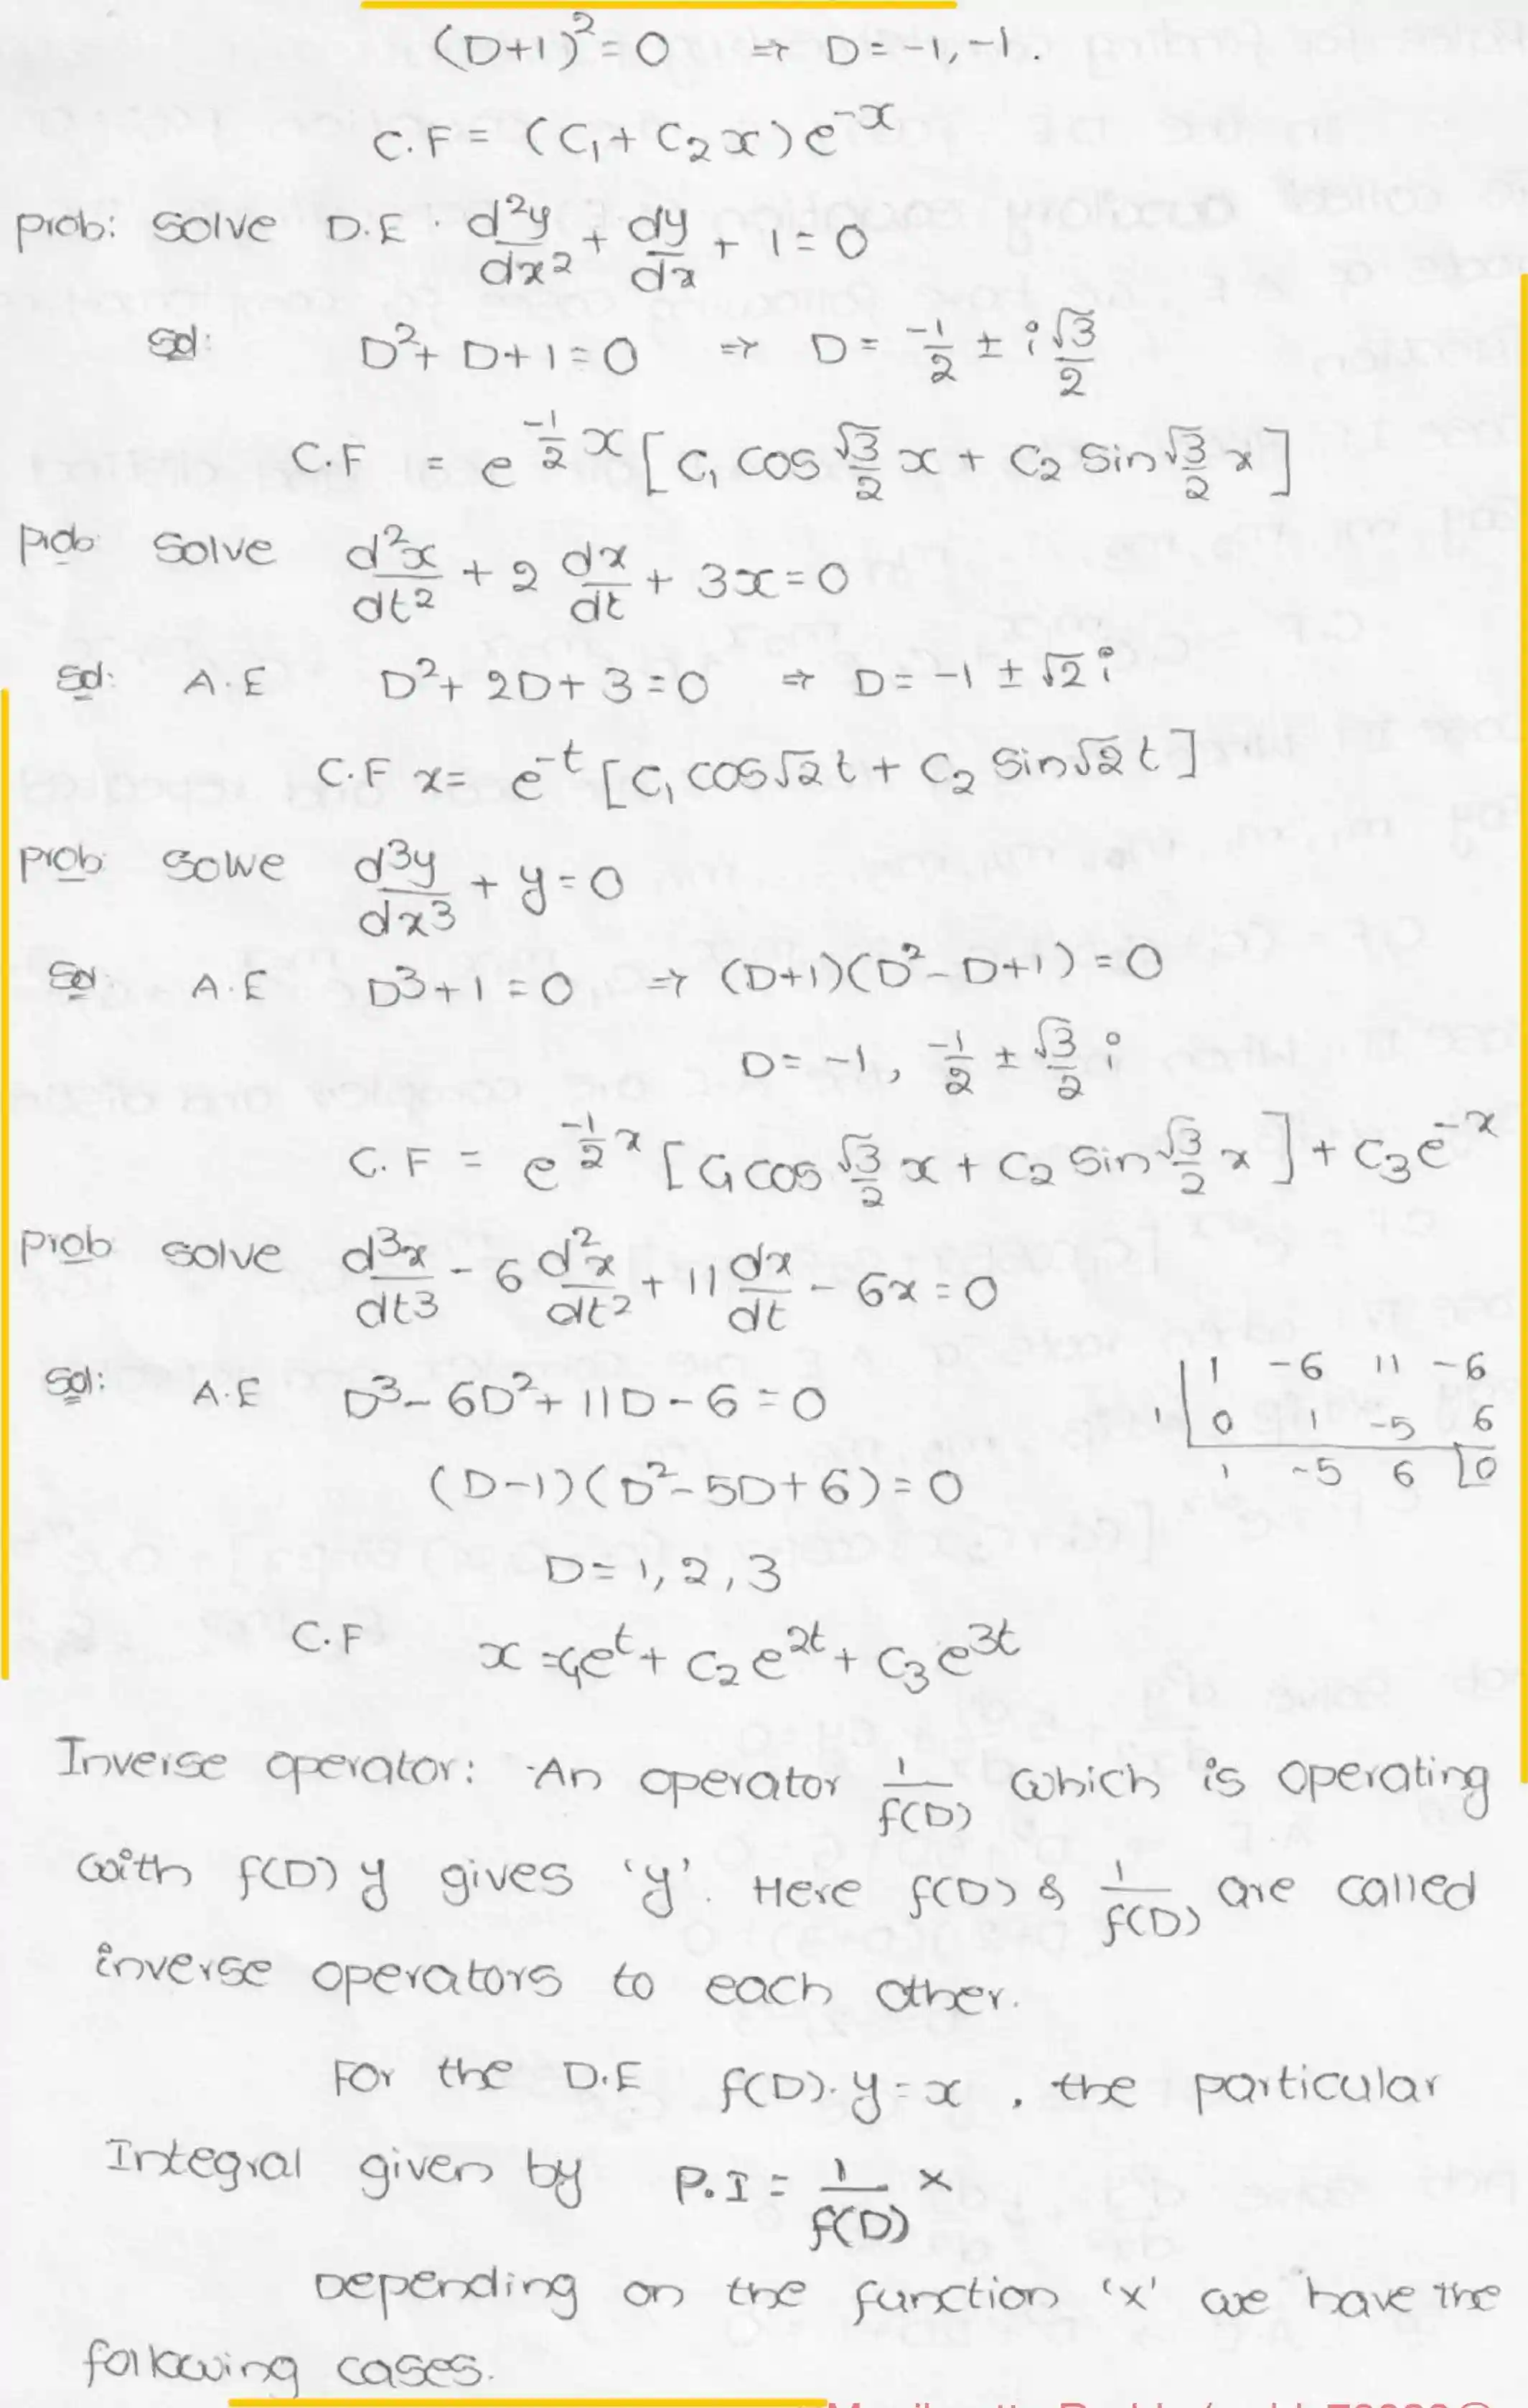 (D+1)²=0 ⇒ D=-1,-1.
C.F = (C₁+C₂x)e^{-x}
Prob: Solve D.E. d²y/dx² + dy/dx + 1=0
Sol: D²+D+1=0 ⇒ D= -1/2 ± i √3/2
C.F = e^{-1/2 x} [C₁ cos √3/2 x + C₂ Sin √3/2 x]
Prob Solve d²x/dt² + 2 dx/dt + 3x=0
Sol: A.E D²+2D+3=0 ⇒ D= -1 ± √2 i
C.F x= e^{-t} [C₁ cos√2t + C₂ Sin√2t]
Prob Solve d³y/dx³ + y=0
Sol A.E D³+1=0 ⇒ (D+1)(D²-D+1)=0
D= -1, -1/2 ± √3/2 i
C.F = e^{-1/2 x} [C₁ cos √3/2 x + C₂ Sin √3/2 x] + C₃e^{-x}
Prob solve d³x/dt³ - 6 d²x/dt² + 11 dx/dt - 6x=0
Sol: A.E D³-6D²+11D-6=0
1 -6 11 -6
1 0 1 -5 6
1 -5 6 0
(D-1)(D²-5D+6)=0
D=1,2,3
C.F x=C₁e^t + C₂e^{2t} + C₃e^{3t}
Inverse operator: An operator 1/f(D) which is operating
with f(D) y gives 'y'. Here f(D) & 1/f(D) are called
inverse operators to each other.
For the D.E f(D).y=x, the particular
Integral given by P.I = 1/f(D) x
Depending on the function 'x' we have the
following cases.